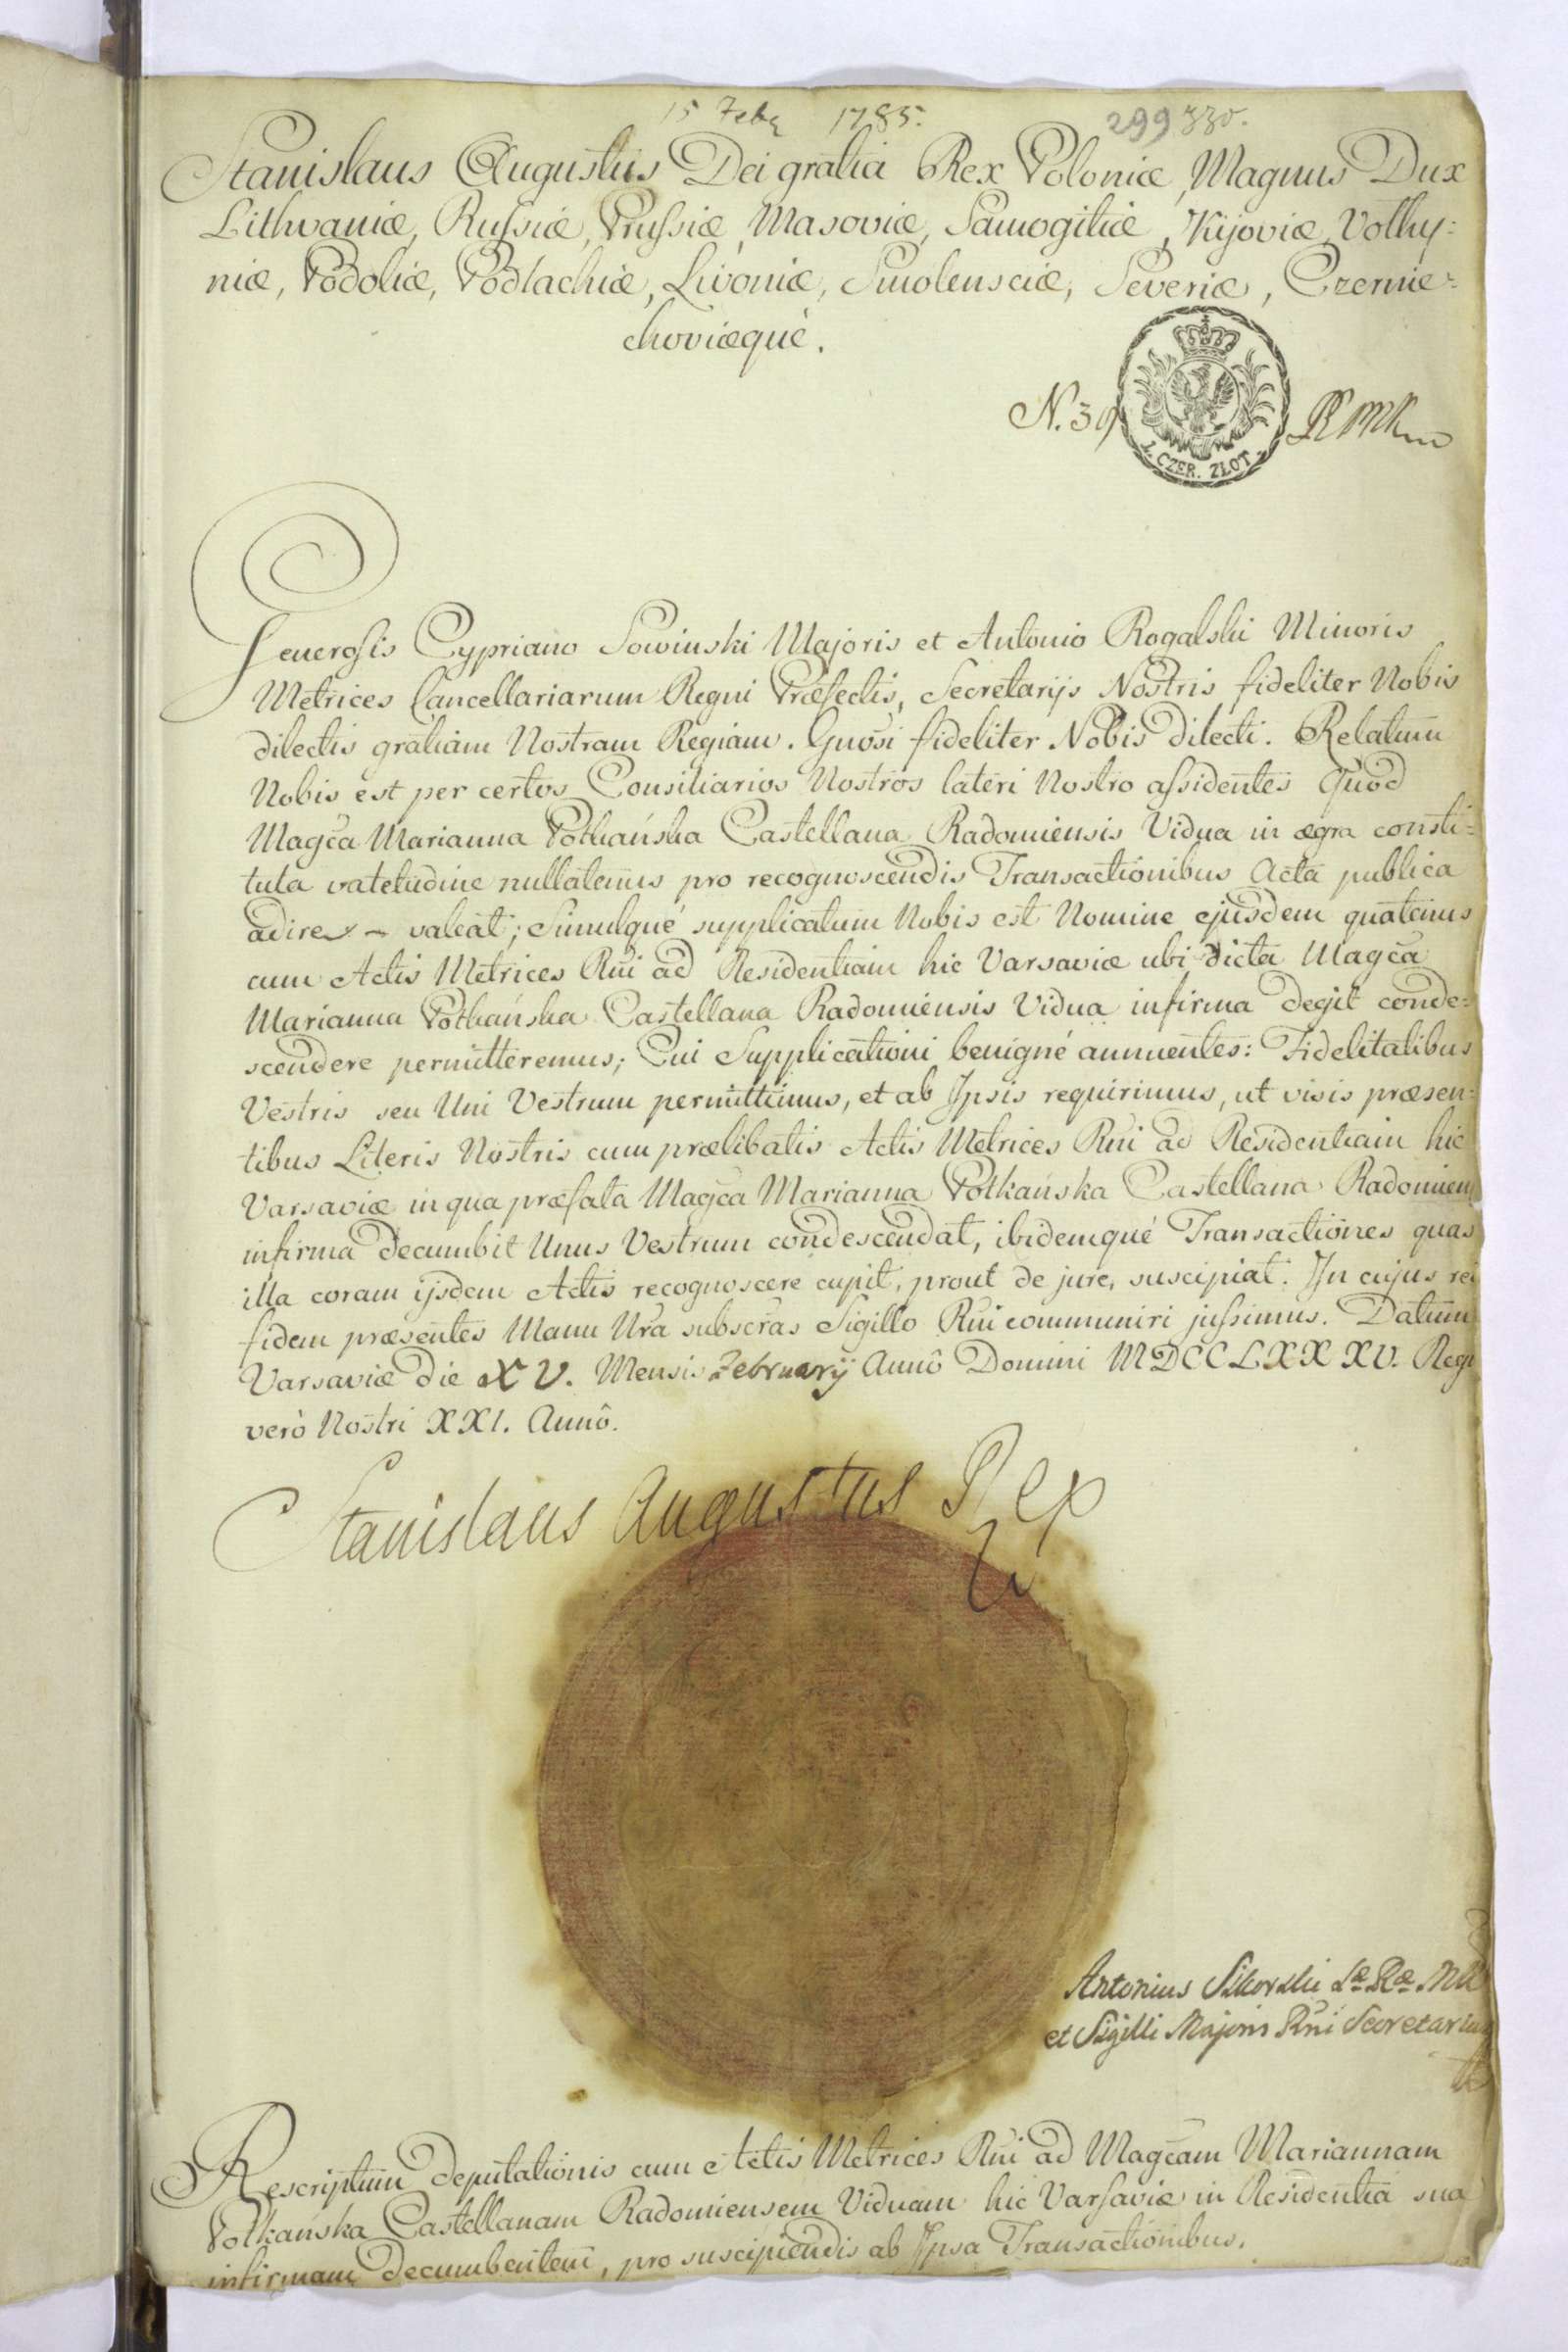 15 Febr 1785. 299 330.
Stanislaus Augustus Dei gratia Rex Poloniæ, Magnus Dux
Lithvaniæ, Russiæ, Prussiæ, Masoviæ, Samogitiæ, Kijoviæ, Volhy:
niæ, Podoliæ, Podlachiæ, Livoniæ, Smolensciæ, Severiæ, Czernie:
choviæquè.
N. 39
1. CZER. ZŁOT.
Generosis Cypriano Sowinski Majoris et Antonio Rogalski Minoris
Metrices Cancellariarum Regni Præfectis, Secretarijs Nostris fideliter Nobis
dilectis gratiam Nostram Regiam. Gnosi fideliter Nobis dilecti. Relatum
Nobis est per certos Consiliarios Nostros lateri Nostro assidentes Quod
Magca Marianna Potkańska Castellana Radomiensis Vidua in ægra consti:
tuta valetudine nullatenus pro recognoscendis Transactionibus Acta publica
adire valeat; Simulque supplicatum Nobis est Nomine ejusdem quatenus
cum Actis Metrices Rni ad Residentiam hic Varsaviæ ubi dicta Magca
Marianna Potkańska Castellana Radomiensis Vidua infirma degit conde:
scendere permitteremus; Cui Supplicationi benigné annuentes: Fidelitatibus
Vestris seu Uni Vestrum permittimus, et ab Ipsis requirimus, ut visis præsen:
tibus Literis Nostris cum prælibatis Actis Metrices Rni ad Residentiam hic
Varsaviæ in qua præfata Magca Marianna Potkańska Castellana Radomien
infirma decumbit Unus Vestrum condescendat, ibidemqué Transactiones quas
illa coram ijsdem Actis recognoscere cupit, prout de jure, suscipiat. In cujus rei
fidem præsentes Manu Nra subscras Sigillo Rni communiri jussimus. Datum
Varsaviæ die XV. Mensis Februarij Annô Domini MDCCLXXXV. Regni
verò Nostri XXI. Annô.
Stanislaus Augustus Rex
Antonius Sikorski Sæ Ræ Mtt
et Sigilli Majoris Rni Secretarius
Rescriptum deputationis cum Actis Metrices Rni ad Magcam Mariannam
Potkańska Castellanam Radomiensem Viduam hic Varsaviæ in Residentia sua
infirmam decumbentem, pro suscipiendis ab Ipsa Transactionibus.